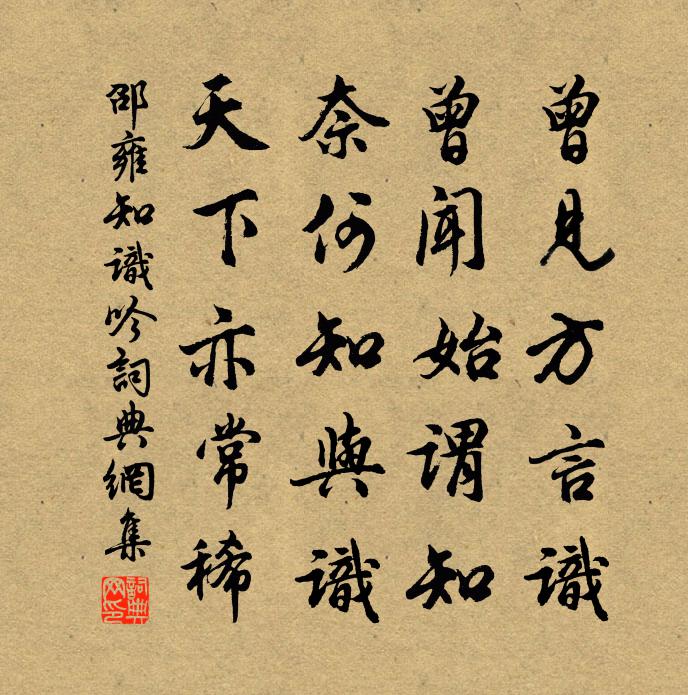 曾見方言識
曾聞始謂知
奈何知與識
天下亦常稀
邵雍知識吟詞典網集
詞典网印